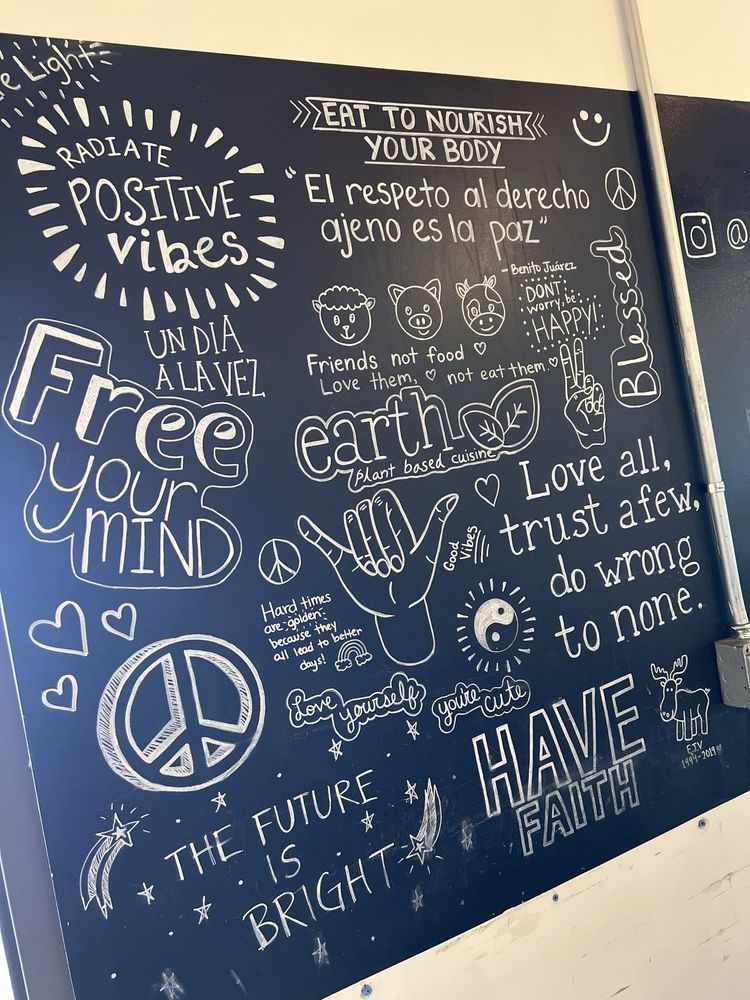 e Light
RADIATE
POSITIVE
vibes
EAT TO NOURISH
YOUR BODY
"El respeto al derecho
ajeno es la paz"
- Benito Juárez
@
UN DIA
A LA VEZ
DON'T
worry, be
HAPPY!
Blessed
Friends not food
Love them, not eat them.
Free
your
MIND
earth
plant based cuisine
Love all,
trust a few,
do wrong
to none.
Good
Vibes
Hard times
are golden
because they
all lead to better
days!
Love yourself
you're cute
HAVE
FAITH
EJV
1994-2019
THE FUTURE
IS
BRIGHT